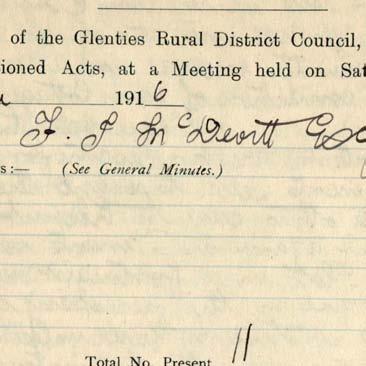 of the Glenties Rural District Council,
tioned Acts, at a Meeting held on Sat
1916
F. J McDevitt Esq
s:— (See General Minutes.)
Total No. Present 11